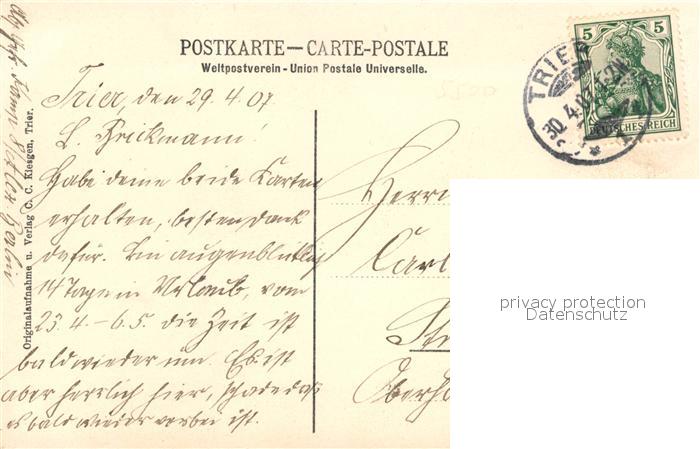 POSTKARTE — CARTE-POSTALE
Weltpostverein - Union Postale Universelle.
5 5
DEUTSCHES REICH
TRIER
30.4.07
* 1
Trier, den 29.4.07
L. Brickmann!
Habe deine beide Karten
erhalten, besten dank
dafür. Bin augenblicklich
14 Tage in Urlaub, vom
23.4. – 6.5. die Zeit ist
bald wieder um. Es ist
aber herrlich hier, schade daß
es bald wieder vorbei ist.
Herrn
Carl
Oberh
Originalaufnahme u. Verlag C. C. Kiesgen, Trier.
privacy protection
Datenschutz